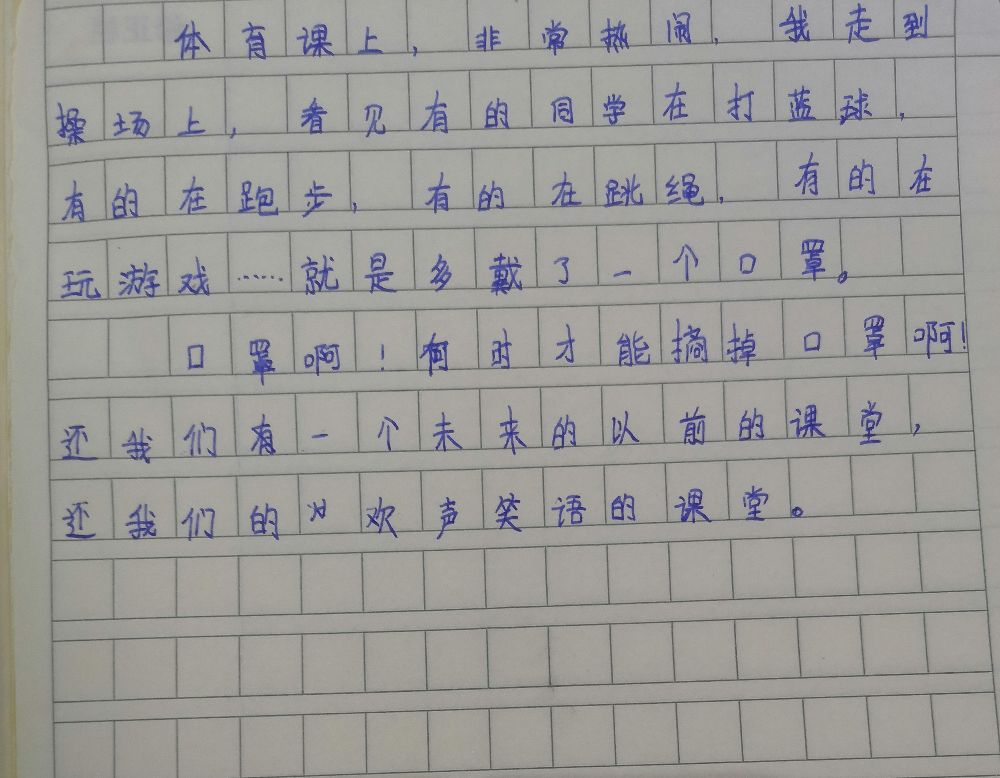 体育课上，非常热闹，我走到
操场上，看见有的同学在打蓝球，
有的在跑步，有的在跳绳，有的在
玩游戏……就是多戴了一个口罩。
口罩啊！何时才能摘掉口罩啊！
还我们有一个未来的以前的课堂，
还我们的欢声笑语的课堂。